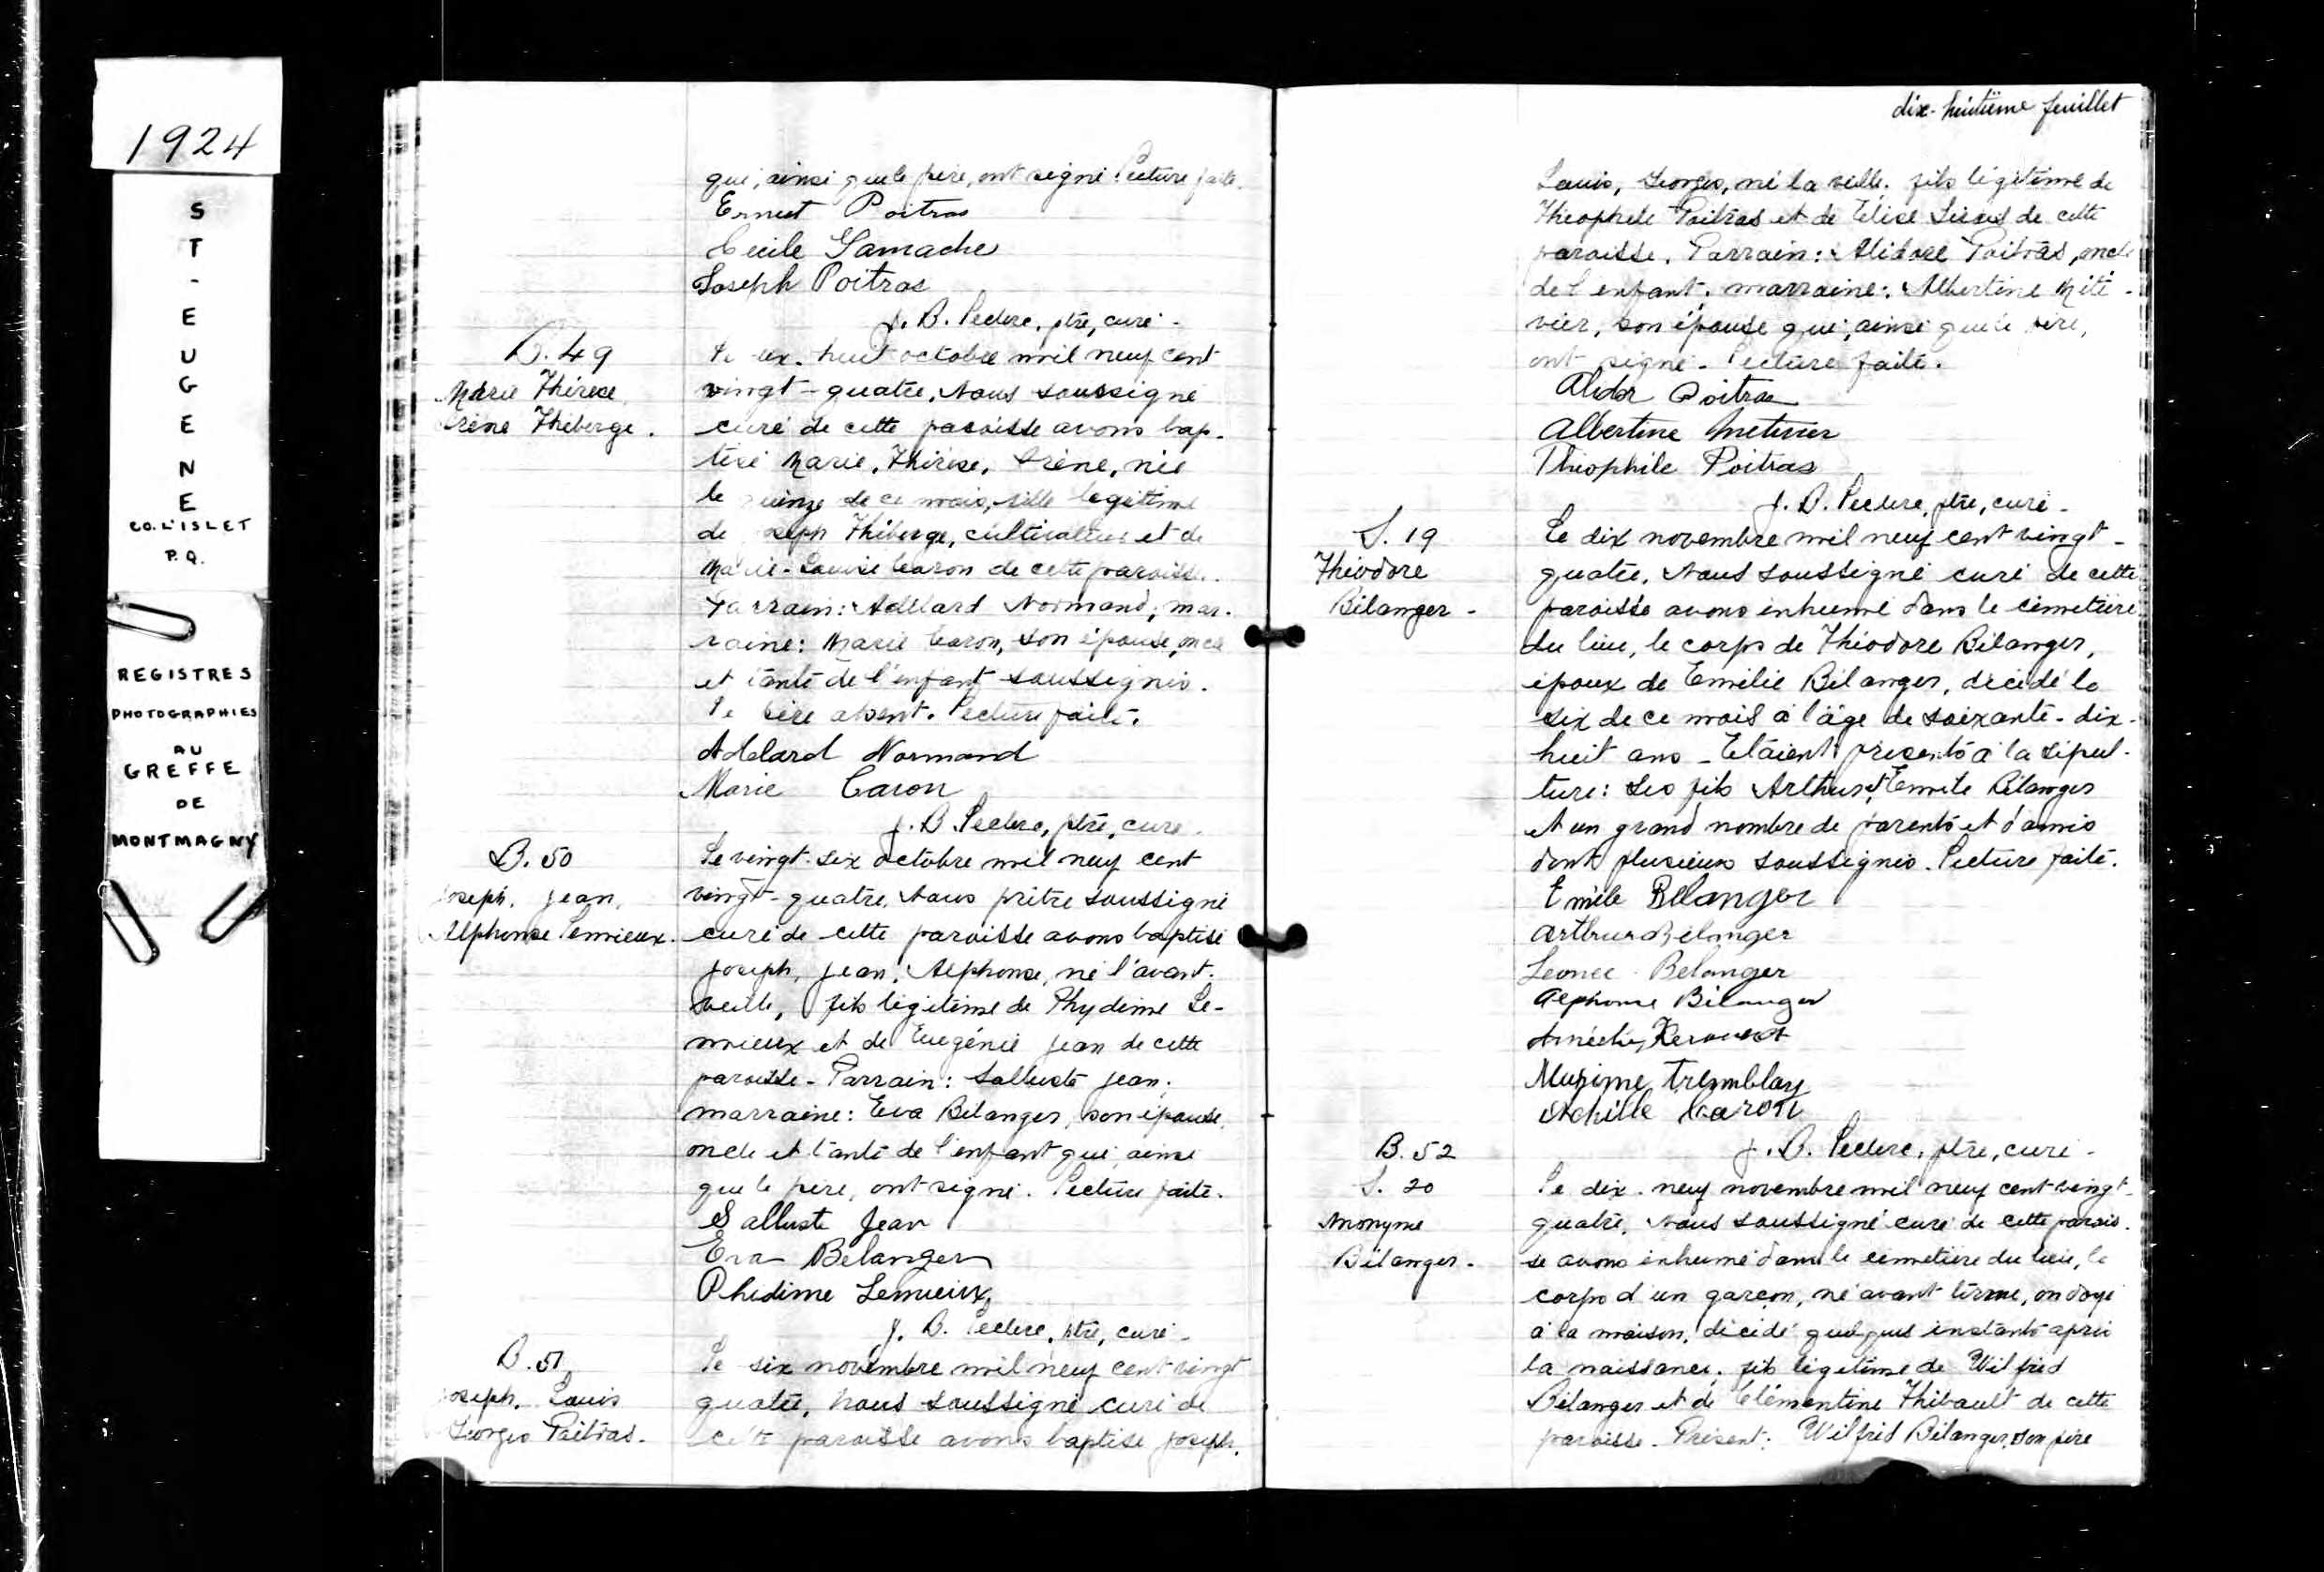 1924
ST-EUGENE
CO. L'ISLET
P.Q.
REGISTRES
PHOTOGRAPHIES
AU
GREFFE
DE
MONTMAGNY
qui, ainsi que le père, ont signé. Lecture faite.
Ernest Poitras
Cécile Gamache
Joseph Poitras
J. B. Leclerc, ptre, curé.
B. 49
Marie Thérèse
Irène Théberge.
Le dix-huit octobre mil neuf cent
vingt-quatre, Nous soussigné
curé de cette paroisse avons bap-
tisé Marie, Thérèse, Irène, née
le quinze de ce mois, fille légitime
de Joseph Théberge, cultivateur et de
Marie-Louise Caron de cette paroisse.
Parrain: Adélard Normand; mar-
raine: Marie Caron, son épouse, oncle
et tante de l'enfant soussignés.
Le père absent. Lecture faite.
Adelard Normand
Marie Caron
J. B. Leclerc, ptre, curé.
B. 50
Joseph, Jean,
Alphonse Lemieux.
Le vingt-six octobre mil neuf cent
vingt-quatre, Nous prêtre soussigné
curé de cette paroisse avons baptisé
Joseph, Jean, Alphonse, né l'avant-
veille, fils légitime de Phydime Le-
mieux et de Eugénie Jean de cette
paroisse - Parrain: Salluste Jean;
marraine: Eva Bélanger, son épouse,
oncle et tante de l'enfant qui, ainsi
que le père, ont signé. Lecture faite.
Salluste Jean
Eva Belanger
Phidime Lemieux
J. B. Leclerc, ptre, curé -
B. 51
Joseph, Louis
Georges Poitras.
Le six novembre mil neuf cent vingt
quatre, Nous soussigné curé de
cette paroisse avons baptisé Joseph,
dix-huitième feuillet
Louis, Georges, né la veille, fils légitime de
Théophile Poitras et de Elise de cette
paroisse. Parrain: Alidore Poitras, oncle
de l'enfant; marraine: Albertine Méti-
vier, son épouse qui, ainsi que le père,
ont signé - Lecture faite.
Alidor Poitras
Albertine Metivier
Théophile Poitras
J. B. Leclerc, ptre, curé -
S. 19
Théodore
Bélanger -
Le dix novembre mil neuf cent vingt-
quatre, Nous soussigné curé de cette
paroisse avons inhumé dans le cimetière
du lieu, le corps de Théodore Bélanger,
époux de Emélie Bélanger, décédé le
six de ce mois à l'âge de soixante-dix-
huit ans - Etaient présents à la sépul-
ture: Ses fils Arthur et Emile Bélanger
et un grand nombre de parents et d'amis
dont plusieurs soussignés. Lecture faite.
Emile Belanger
Arthur Bélanger
Leonce Belanger
Alphonse Bélanger
Kerouack
Maxime Tremblay
Achille Caron
J. B. Leclerc, ptre, curé -
B. 52
S. 20
Anonyme
Bélanger -
Le dix-neuf novembre mil neuf cent vingt-
quatre, Nous soussigné curé de cette parois-
se avons inhumé dans le cimetière du lieu, le
corps d'un garçon, né avant terme, ondoyé
à la maison, décédé quelques instants après
la naissance, fils légitime de Wilfrid
Bélanger et de Clémentine Thibault de cette
paroisse - Présent: Wilfrid Bélanger, son père